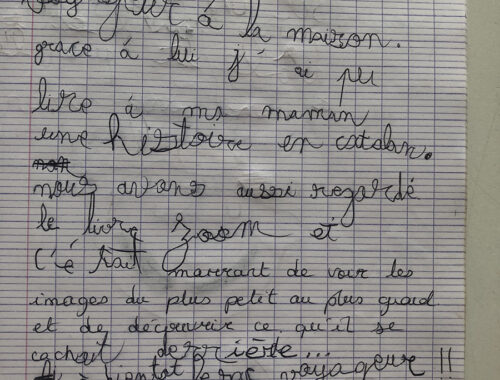 à la maison.
grace á lui j'ai pu
lire á ma maman
une histoire en catalan.
nous avons aussi regardé
le livre zoom et
c'é tait marrant de voir les
images du plus petit au plus grand.
et de découvrir ce qu'il se
cachait derrière...
A bientôt le sac voyageur !!